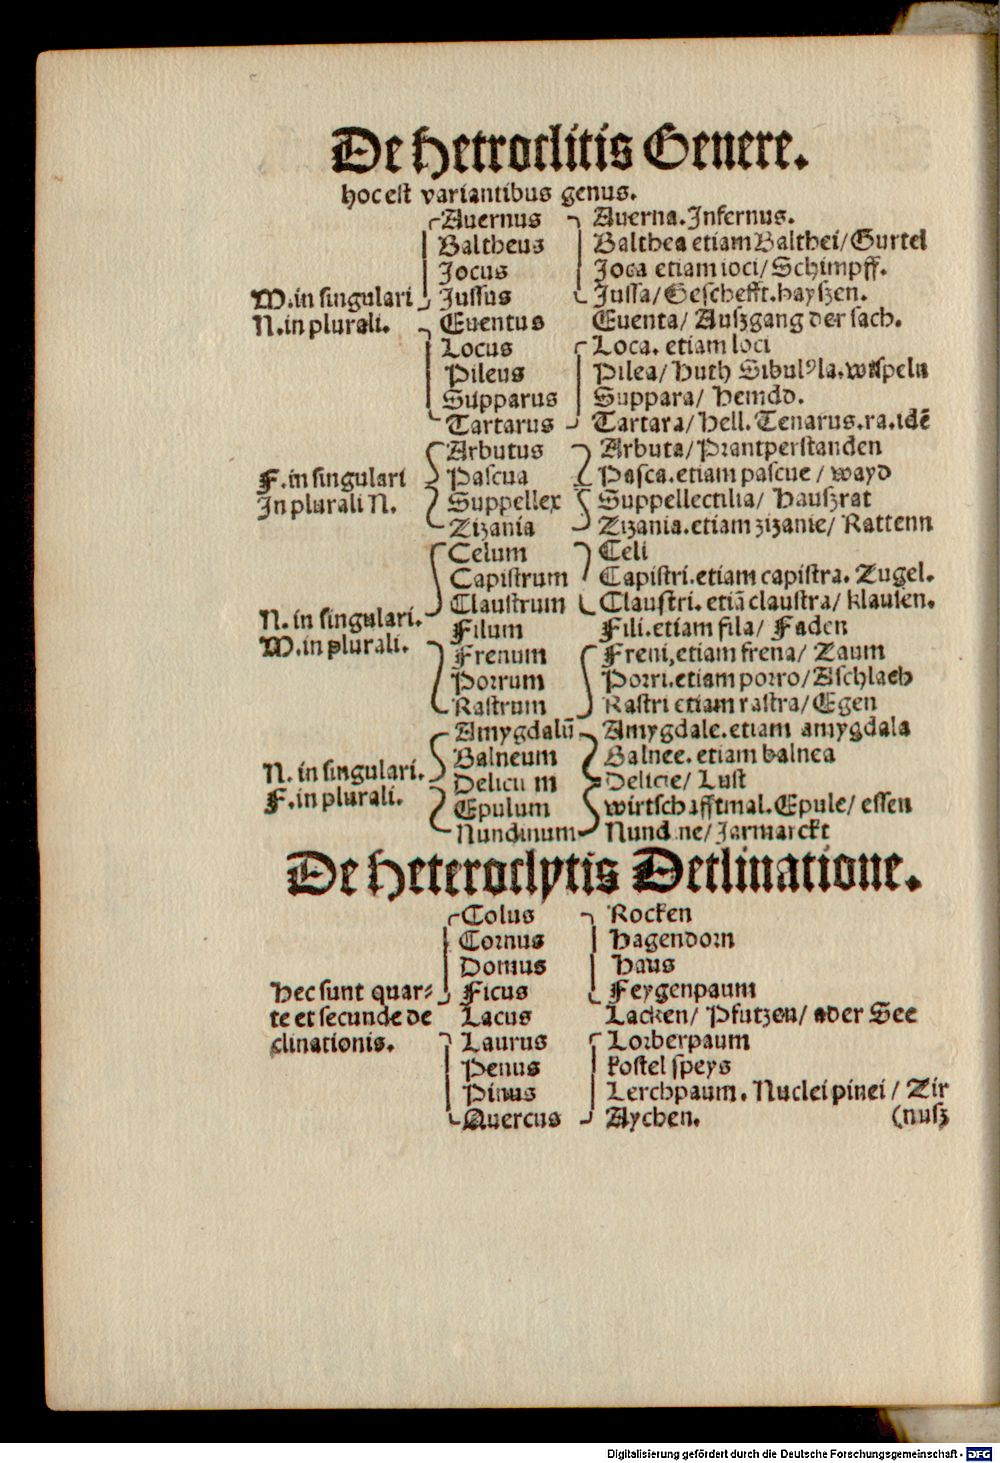 De Hetroclitis Genere.
hoc est variantibus genus.
Auernus Auerna. Infernus.
Baltheus Balthea etiam Balthei/ Gurtel
Jocus Joca etiam ioci/ Schimpff.
M. in singulari Jussus Jussa/ Geschefft. hayszen.
N. in plurali. Euentus Euenta/ Auszgang der sach.
Locus Loca. etiam loci
Pileus Pilea/ Huth Sibulꝰla. wispeln
Supparus Suppara/ Hemdd.
Tartarus Tartara/ Hell. Tenarus. ra. idē
Arbutus Arbuta/ Prantperstanden
F. in singulari Pascua Pasca. etiam pascue / wayd
In plurali N. Suppellex Suppellectilia/ Hauszrat
Zizania Zizania. etiam zizanie/ Rattenn
Celum Celi
Capistrum Capistri. etiam capistra. Zugel.
N. in singulari. Claustrum Claustri. etiā claustra/ klausen.
M. in plurali. Filum Fili. etiam fila/ Faden
Frenum Freni, etiam frena/ Zaum
Porrum Porri. etiam porro/ Aschlach
Rastrum Rastri etiam rastra/ Egen
Amygdalū Amygdale. etiam amygdala
Balneum Balnee. etiam balnea
N. in singulari. Delicium Delicie/ Lust
F. in plurali. Epulum wirtschafftmal. Epule/ essen
Nundinum Nund ne/ Jarmarckt
De Heteroclytis Declinatione.
Colus Rocken
Cornus Hagendorn
Domus Haus
Hec sunt quar⸗ Ficus Feygenpaum
te et secunde de Lacus Lacken/ Pfutzen/ oder See
clinationis. Laurus Lorberpaum
Penus kostel speys
Pinus Lerchpaum. Nuclei pinei / Zir
Quercus Aychen. (nusz
Digitalisierung gefördert durch die Deutsche Forschungsgemeinschaft - DFG